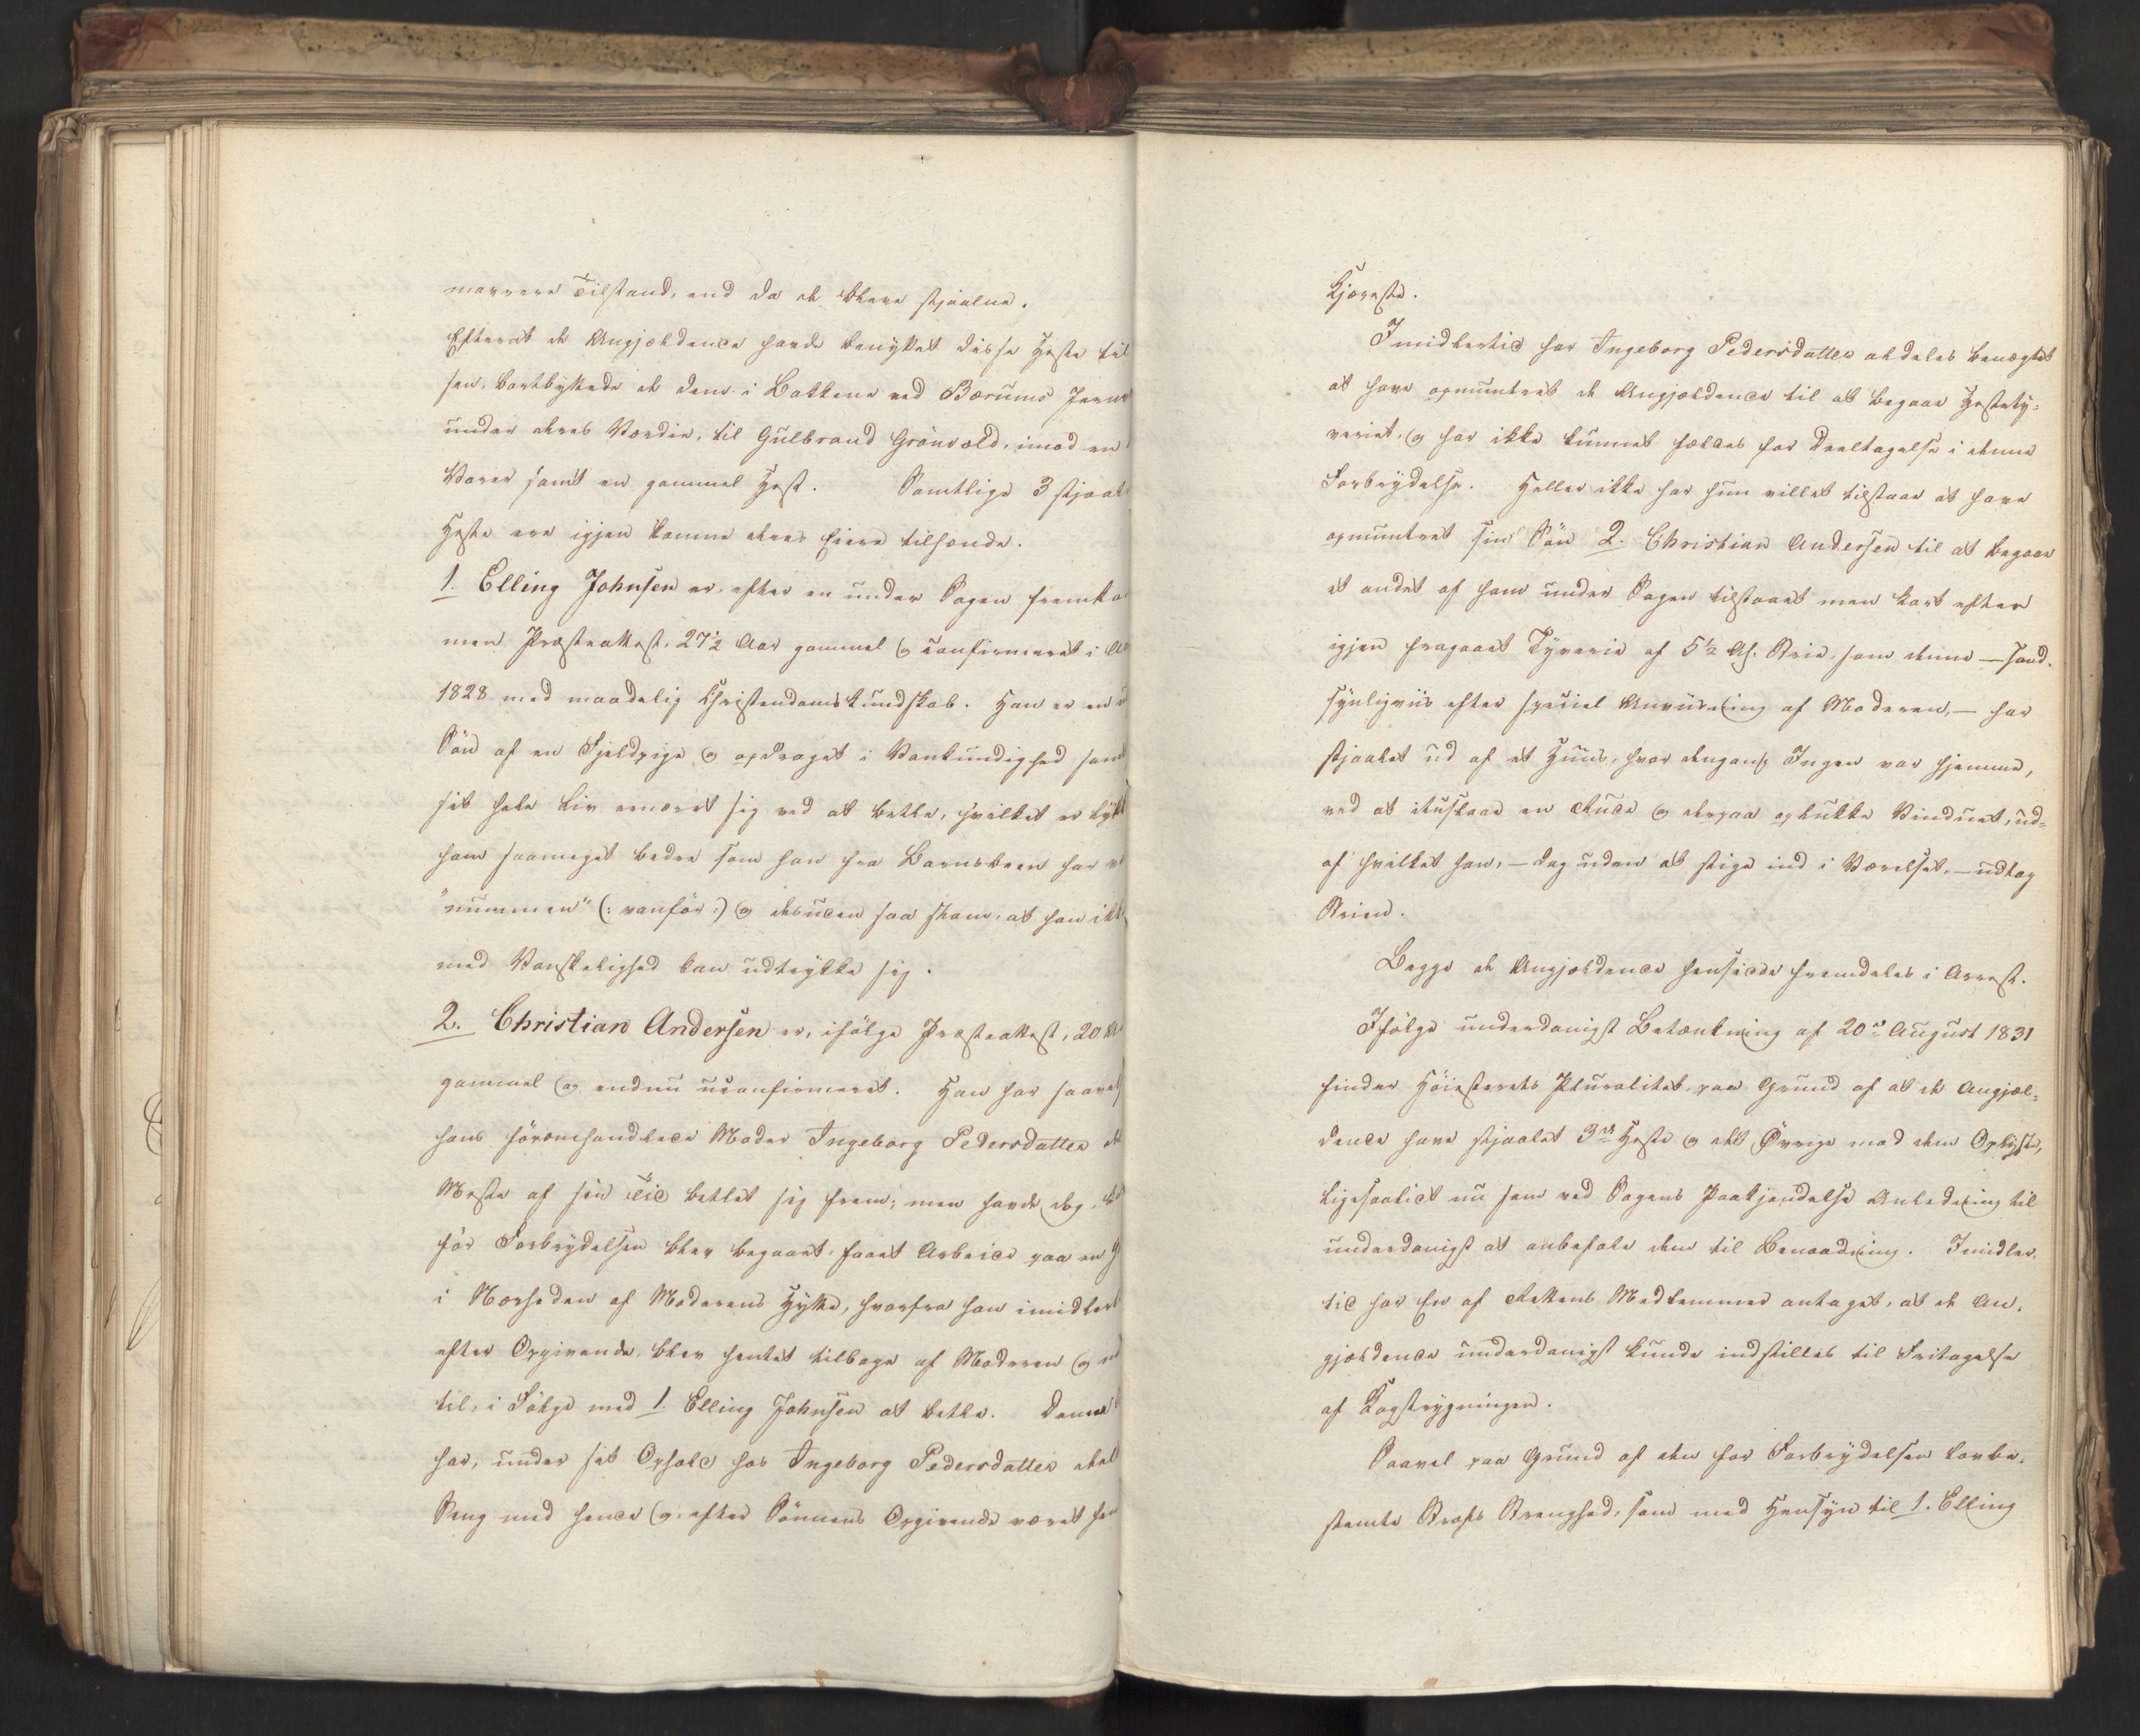 mavrere Tilstand, end da de bleve stjaalne.
Efterat de Angjeldende havde benyttet disse Heste til
sen, bortbyttede de dem i Bakkene ved Bærums Jernv
under deres Værdie, til Gulbrand Grönvold, imod en
Varer samt en gammel Hest. Samtlige 3 stjaal
Heste ere igjen komne deres Eiere tilhænde.
1. Elling Johnsen er, efter en under Sagen fremko
men Præsteattest, 27½ Aar gammel og confirmeret i A
1828 med maadelig Christendomskundskab. Han er en
Sön af en Fjeldpige og opdraget i Vankundighed samt
sit hele Liv ernæret sig ved at betle, hvilket er lykk
ham saameget bedre som han fra Barnsbeen har
"nummen" (: vanför :) og desuden saa stam, at han ikk
med Vanskelighed kan udtrykke sig.
2. Christian Andersen er, ifölge Præsteattest, 20 A
gammel og endnu uconfirmeret. Han har saavel
hans föromhandlede Moder Ingeborg Pedersdatter det
Meste af sin Tid betlet sig frem; men havde dog,
för Forbrydelsen blev begaaet, faaet Arbeide paa en G
i Nærheden af Moderens Hytte, hvorfra han imidlert
efter Opgivende, blev hentet tilbage af Moderen og
til, i Fölge med 1. Elling Johnsen at betle. Denne
har, under sit Ophold hos Ingeborg Pedersdatter deel
Seng med hende og, efter Sönnens Opgivende været hen
Kjæreste.
Imidlertid har Ingeborg Pedersdatter aldeles benægtet
at have opmuntret de Angjeldende til at begaae Hestety-
veriet, og har ikke kunnet fældes for Deeltagelse i denne
Forbrydelse. Heller ikke har hun villet tilstaae at have
opmuntret sin Sön 2. Christian Andersen til at begaae
et andet af ham under Sagen tilstaaet men kort efter
igjen fragaaet Tyverie af 5½ Al. Strie, som denne — sand-
synligviis efter speciel Anviisning af Moderen, — har
stjaalet ud af et Huus, hvor dengang Ingen var hjemme,
ved at ituslaae en Rude og derpaa oplukke Vinduet, ud-
af hvilket han, — dog uden at stige ind i Værelset, — udtog
Strien.
Begge de Angjeldende hensidde fremdeles i Arrest.
Ifölge underdanigst Betænkning af 20de August 1831
finder Höiesterets Pluralitet, paa Grund af at de Angjæl-
dende have stjaalet 3de Heste og det Övrige mod dem Oplyste,
ligesaalidt nu som ved Sagens Paakjendelse Anledning til
underdanigst at anbefale dem til Benaadning. Imidler-
tid har En af Rettens Medlemmer antaget, at de An-
gjældende underdanigst kunde indstilles til Fritagelse
af Kagstrygningen.
Saavel paa Grund af den for Forbrydelsen lovbe-
stemte Strafs Strenghed, som med Hensyn til 1. Elling